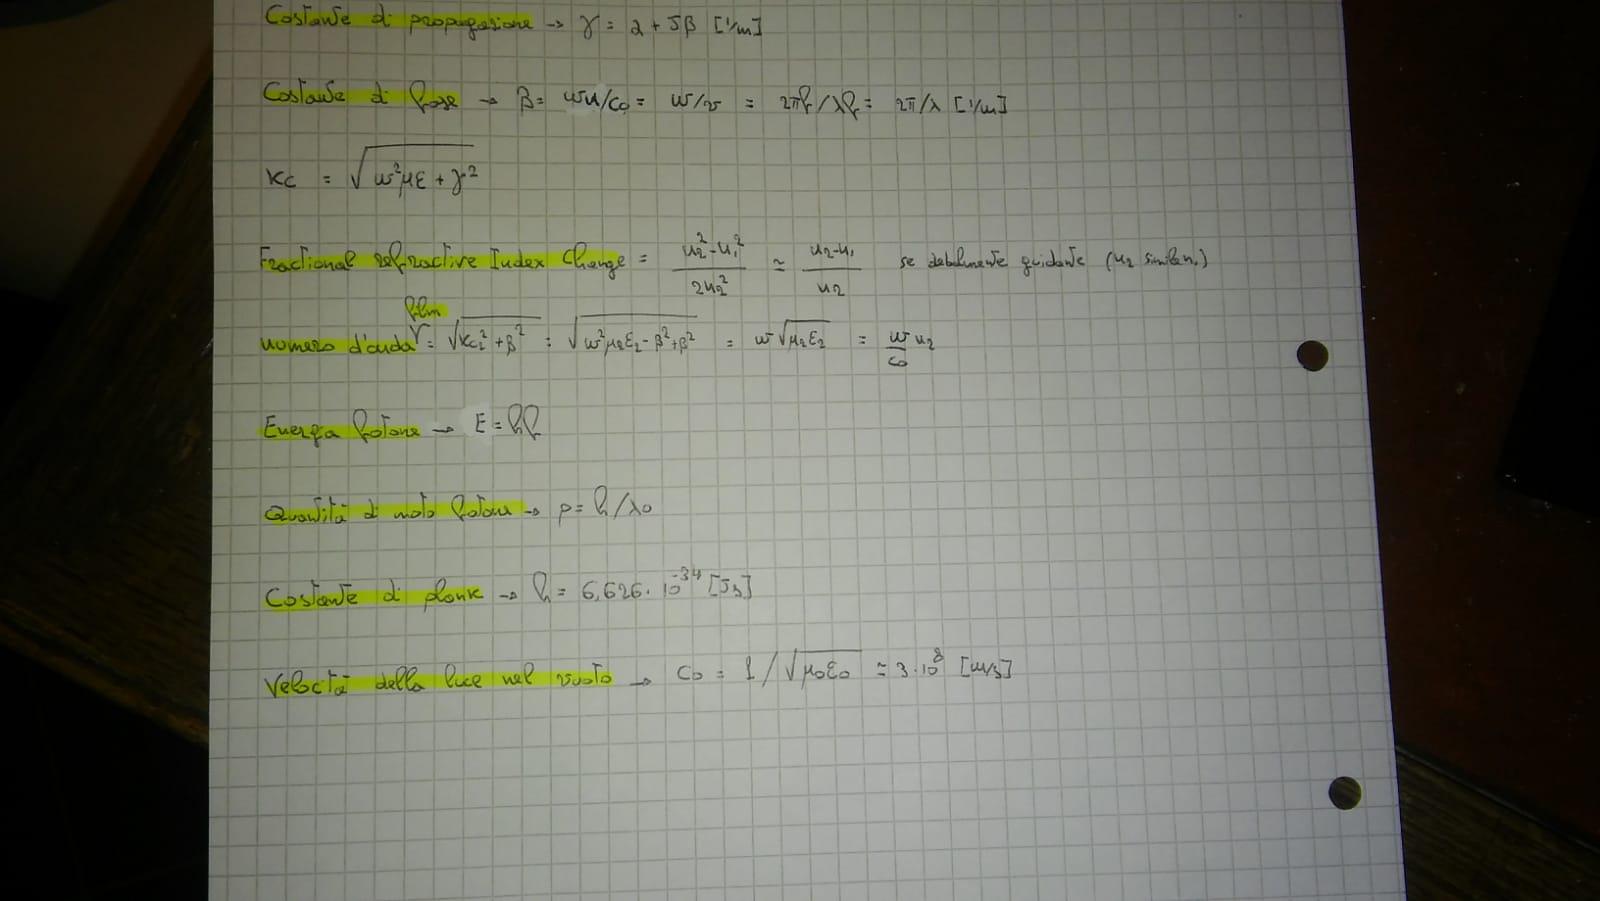 Costante di propagazione → γ = α + Jβ [1/m]
Costante di fase → β = wn/c0 = w/v = 2πf/λf = 2π/λ [1/m]
Kc = √(w²με + γ²)
Fractional refractive Index Change = (n2² - n1²)/(2n2²) ≃ (n2 - n1)/n2 se debolmente guidante (n2 simile n1)
film
numero d'onda = √(Kc2² + β²) = √(w²μ2ε2 - β² + β²) = w√(μ2ε2) = w/c0 n2
Energia fotone → E = hf
Quantità di moto fotone → p = h/λ0
Costante di plank → h = 6,626 · 10^-34 [Js]
Velocità della luce nel vuoto → C0 = 1/√(μ0ε0) ≃ 3·10^8 [m/s]